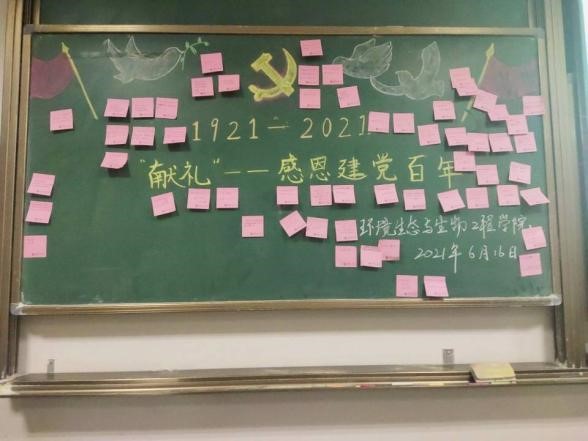 1921—2021
"献礼"——感恩建党百年
环境生态与生物工程学院
2021年6月16日